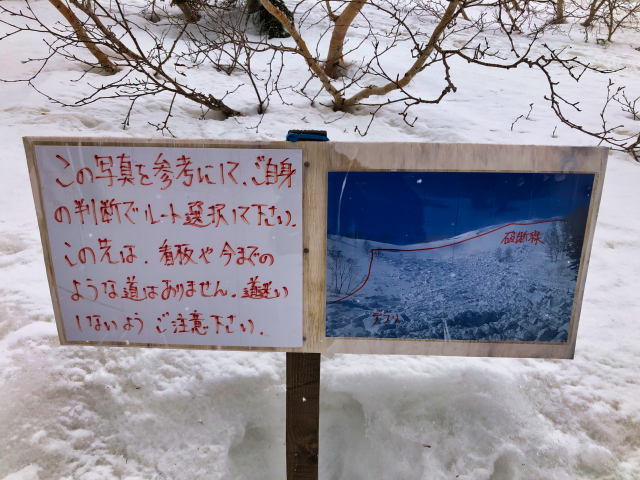 この写真を参考にして、ご自身
の判断でルート選択して下さい。
この先は、看板や今までの
ような道はありません。道迷い
しないようご注意下さい。
破断線
デブリ